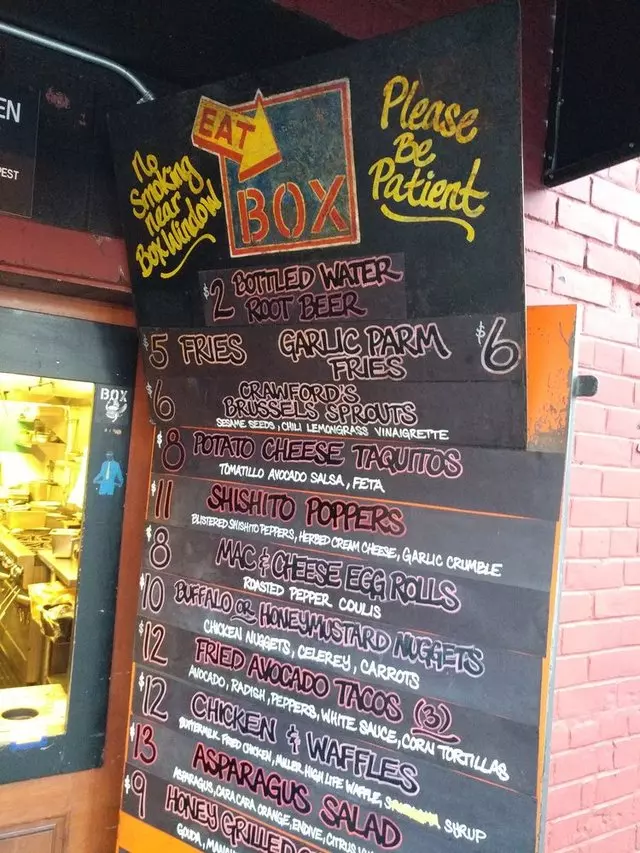 EN
PEST
No
Smoking
near
Box Window
EAT
BOX
Please
Be
Patient
$2 BOTTLED WATER
ROOT BEER
$5 FRIES GARLIC PARM FRIES $6
$6 CRAWFORD'S
BRUSSELS SPROUTS
SESAME SEEDS, CHILI LEMONGRASS VINAIGRETTE
$8 POTATO CHEESE TAQUITOS
TOMATILLO AVOCADO SALSA, FETA
$11 SHISHITO POPPERS
BLISTERED SHISHITO PEPPERS, HERBED CREAM CHEESE, GARLIC CRUMBLE
$8 MAC & CHEESE EGG ROLLS
ROASTED PEPPER COULIS
$10 BUFFALO OR HONEYMUSTARD NUGGETS
CHICKEN NUGGETS, CELEREY, CARROTS
$12 FRIED AVOCADO TACOS (3)
AVOCADO, RADISH, PEPPERS, WHITE SAUCE, CORN TORTILLAS
$12 CHICKEN & WAFFLES
BUTTERMILK FRIED CHICKEN, MILLER HIGH LIFE WAFFLE, SYRUP
$13 ASPARAGUS SALAD
ASPARAGUS, CARA CARA ORANGE, ENDIVE, CITRUS
$9 HONEY GRILLED
GOUDA,
BOX